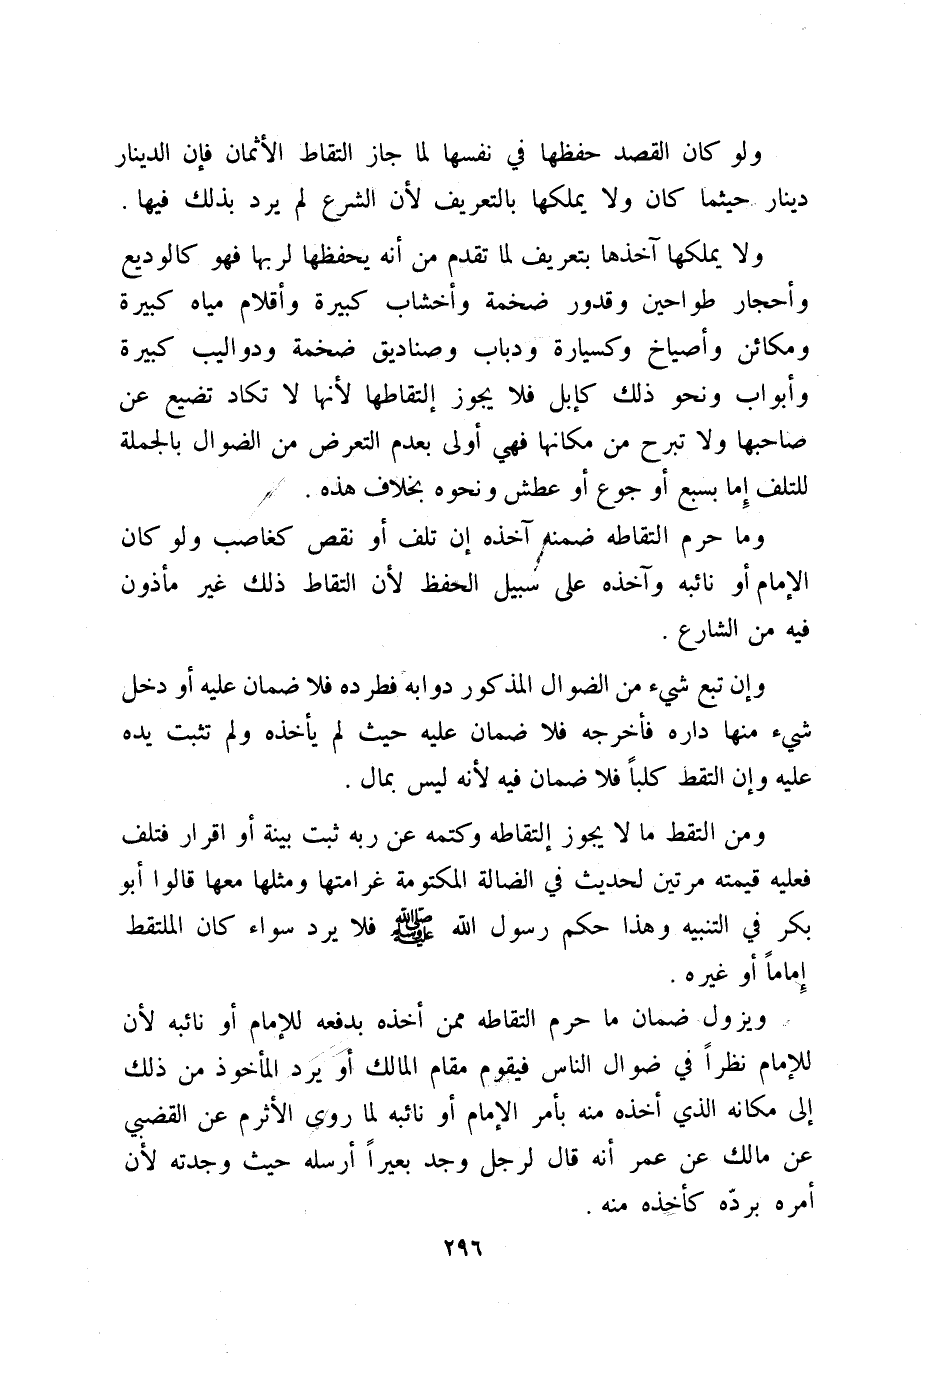 ولو كان القصد حفظها في نفسها لما جاز التقاط الأثمان فإن الدينار
دينار حيثما كان ولا يملكها بالتعريف لأن الشرع لم يرد بذلك فيها .
ولا يملكها آخذها بتعريف لما تقدم من أنه يحفظها لربها فهو كالوديع
وأحجار طواحين وقدور ضخمة وأخشاب كبيرة وأقلام مياه كبيرة
ومكائن وأصياخ وكسيارة ودباب وصناديق ضخمة ودواليب كبيرة
وأبواب ونحو ذلك كإبل فلا يجوز إلتقاطها لأنها لا تكاد تضيع عن
صاحبها ولا تبرح من مكانها فهي أولى بعدم التعرض من الضوال بالجملة
للتلف إما بسبع أو جوع أو عطش ونحوه بخلاف هذه .
وما حرم التقاطه ضمنه آخذه إن تلف أو نقص كغاصب ولو كان
الإمام أو نائبه وآخذه على سبيل الحفظ لأن التقاط ذلك غير مأذون
فيه من الشارع .
وإن تبع شيء من الضوال المذكور دوابه فطرده فلا ضمان عليه أو دخل
شيء منها داره فأخرجه فلا ضمان عليه حيث لم يأخذه ولم تثبت يده
عليه وإن التقط كلباً فلا ضمان فيه لأنه ليس بمال .
ومن التقط ما لا يجوز إلتقاطه وكتمه عن ربه ثبت بينة أو اقرار فتلف
فعليه قيمته مرتين لحديث في الضالة المكتومة غرامتها ومثلها معها قالوا أبو
بكر في التنبيه وهذا حكم رسول الله ﷺ فلا يرد سواء كان الملتقط
إماماً أو غيره .
ويزول ضمان ما حرم التقاطه ممن أخذه بدفعه للإمام أو نائبه لأن
للإمام نظراً في ضوال الناس فيقوم مقام المالك أو يرد المأخوذ من ذلك
إلى مكانه الذي أخذه منه بأمر الإمام أو نائبه لما روي الأثرم عن القضبي
عن مالك عن عمر أنه قال لرجل وجد بعيراً أرسله حيث وجدته لأن
أمره بردّه كأخذه منه .
٢٩٦